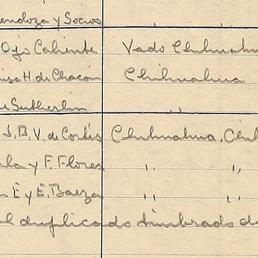 endoza y Socios ,,
Ojo Caliente Vado Chihuahu
isa H. de Chacón Chihuahua
e Sutherlin ,,
J. B. V. de Cortés Chihuahua, Chih
la y F. Flores ,, ,,
n E y E. Baeza ,, ,,
l duplicado timbrado de